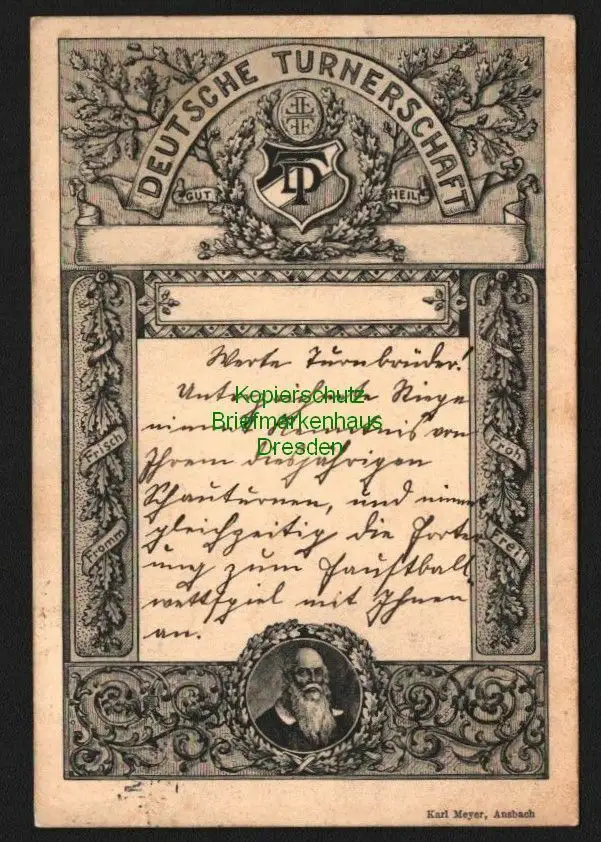 DEUTSCHE TURNERSCHAFT
GUT HEIL
DT
Werte Turnbrüder!
Unterzeichnete Riege
nimmt Kenntnis von
Ihrem diesjährigen
Schauturnen, und nimmt
gleichzeitig die Forder
ung zum Faustball
wettspiel mit Ihnen
an.
Frisch
Fromm
Froh
Frei!
Kopierschutz
Briefmarkenhaus
Dresden
Karl Meyer, Ansbach